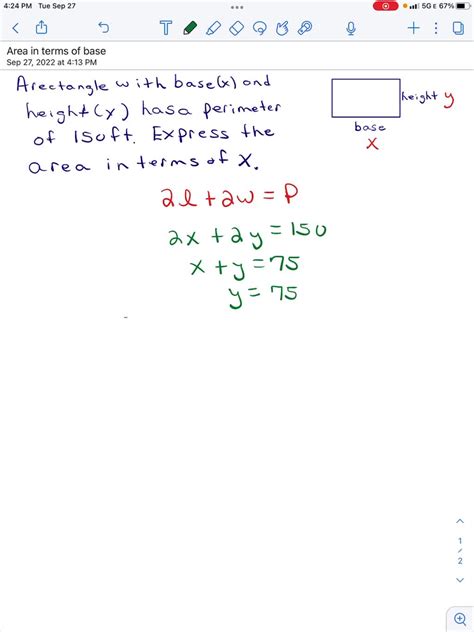 4:24 PM Tue Sep 27
5G E 67%
T
Area in terms of base
Sep 27, 2022 at 4:13 PM
A rectangle with base (x) and
height (y) has a perimeter
of 150ft. Express the
area in terms of x.
height y
base
x
2l + 2w = P
2x + 2y = 150
x + y = 75
y = 75
1
/
2